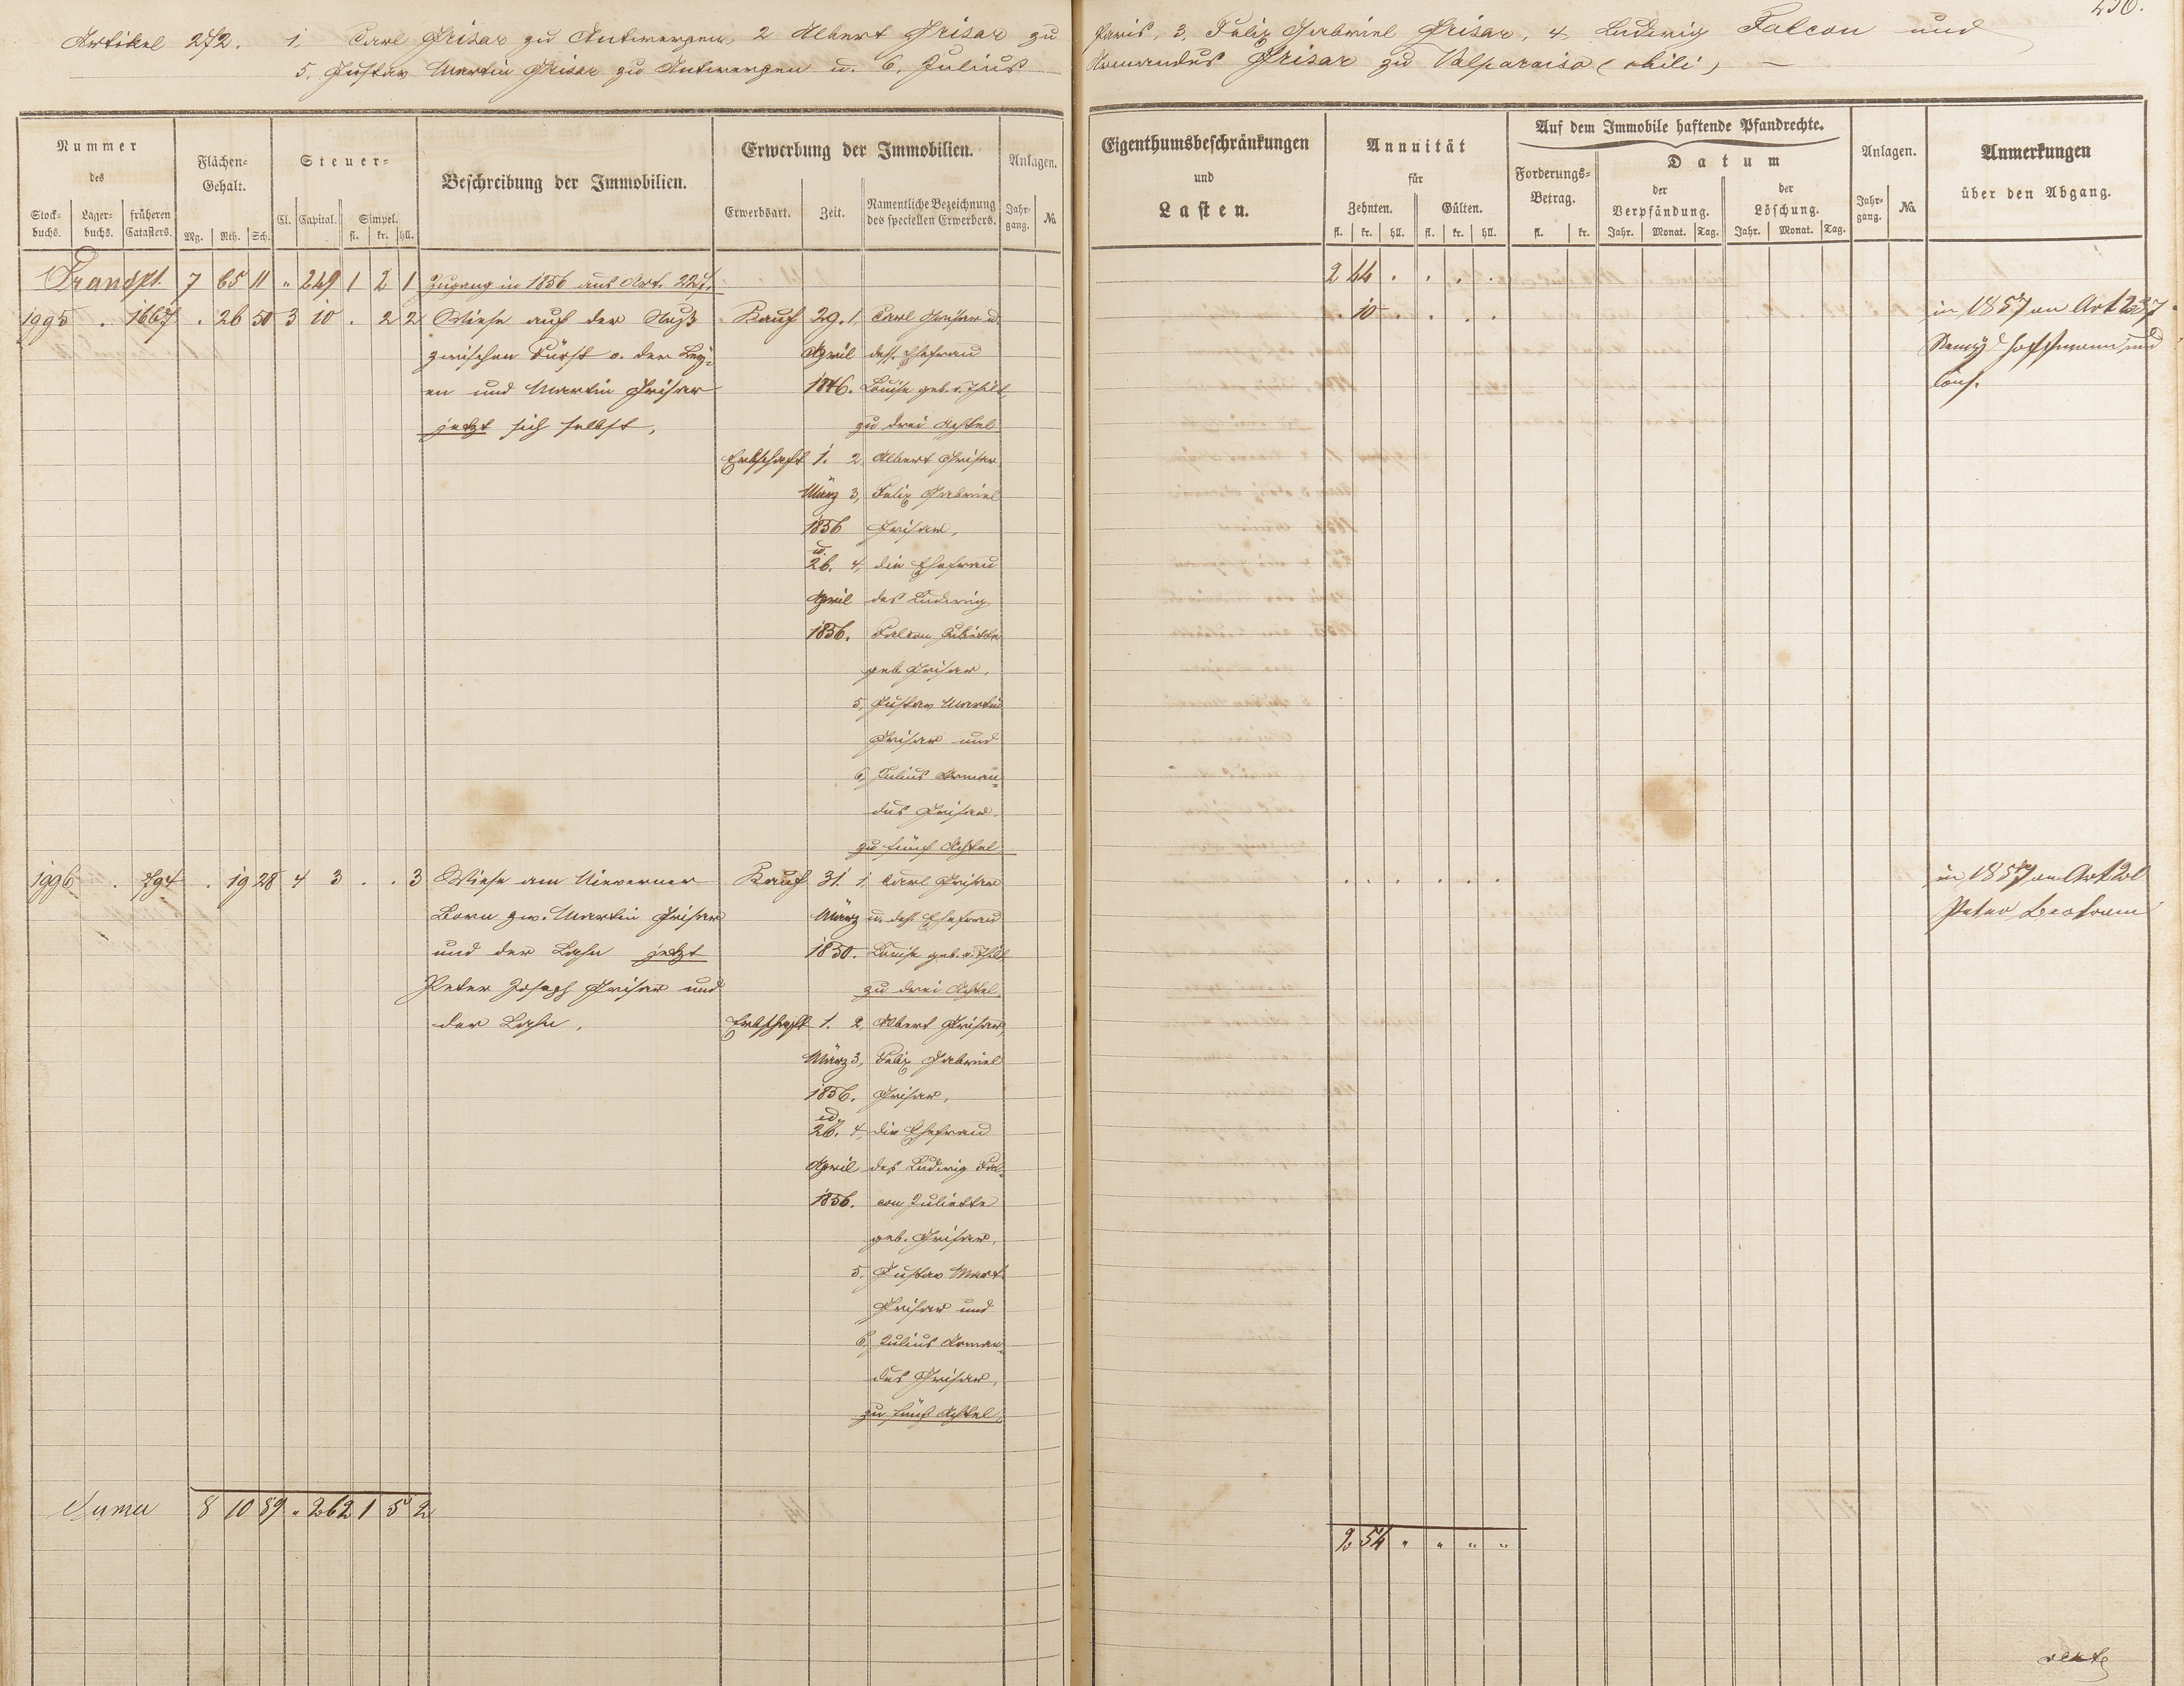 Artikel 272. 1, Carl Grisar zu Antwerpen, 2 Albert Grisar zu Paris, 3, Felix Gabriel Grisar, 4 Ludwig Falcon und
5, Gustav Martin Grisar zu Antwerpen u. 6, Julius Armandus Grisar zu Valparaiso (Chili)
Nummer
des
Stock-
buchs.
Lager-
buchs.
früheren
Catasters.
Flächen-
Gehalt.
Mg. Rth. Sch.
Steuer-
Cl. Capital. Simpel.
fl. kr. hll.
Beschreibung der Immobilien.
Erwerbung der Immobilien.
Erwerbsart. Zeit.
Namentliche Bezeichnung
des speciellen Erwerbers.
Anlagen.
Jahr-
gang.
No.
Transpt. 7 65 11 " 249 1 2 1 Zugang in 1856 aus Art. 224.
1995 . 1667 . 26 50 3 10 . 2 2 Wiese auf der Au Kauf 29. 1, Carl Grisar u.
zwischen Fürst v. der Ley- April dess. Ehefrau
en und Martin Grisar 1846. Louise geb.
jetzt sich selbst, zu drei Achtel
Erbschaft 1. 2, Albert Grisar
März 3, Felix Gabriel
1856 Grisar,
u.
26. 4, die Ehefrau
April des Ludwig
1856. Falcon Juliette
geb. Grisar,
5, Gustav Martin
Grisar und
6, Julius Arman-
dus Grisar,
zu fünf Achtel
1996 . 794 . 19 28 4 3 . . 3 Wiese am Nieverner Kauf 31. 1, Carl Grisar
Born zw. Martin Grisar März u. dess. Ehefrau
und der Lahn jetzt 1850. Louise geb.
Peter Joseph Grisar und zu drei Achtel,
der Lahn, Erbschaft 1. 2, Albert Grisar,
März 3, Felix Gabriel
1856. Grisar,
u.
26. 4, die Ehefrau
April des Ludwig Fal-
1856. con Juliette
geb. Grisar,
5. Gustav Mart.
Grisar und
6, Julius Arman-
dus Grisar,
zu fünf Achtel,
Suma 8 10 89 " 262 1 5 2
Eigenthumsbeschränkungen
und
Lasten.
Annuität
für
Zehnten. Gülten.
fl. kr. hll. fl. kr. hll.
Auf dem Immobile haftende Pfandrechte.
Forderungs-
Betrag.
fl. kr.
Datum
der
Verpfändung.
Jahr. Monat. Tag.
der
Löschung.
Jahr. Monat. Tag.
Anlagen.
Jahr-
gang.
No.
Anmerkungen
über den Abgang.
2 44 . . . .
. 10 . . . . in 1857 an Art
Hoffmann und
Cons.
. . . . . . in 1857 an Art
Peter
2 54 " " " "